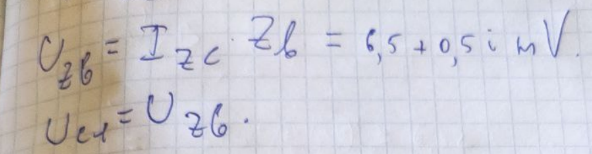 U_zв = I_zc · Z_в = 6,5 + 0,5 i mV.
U_c1 = U_zв.